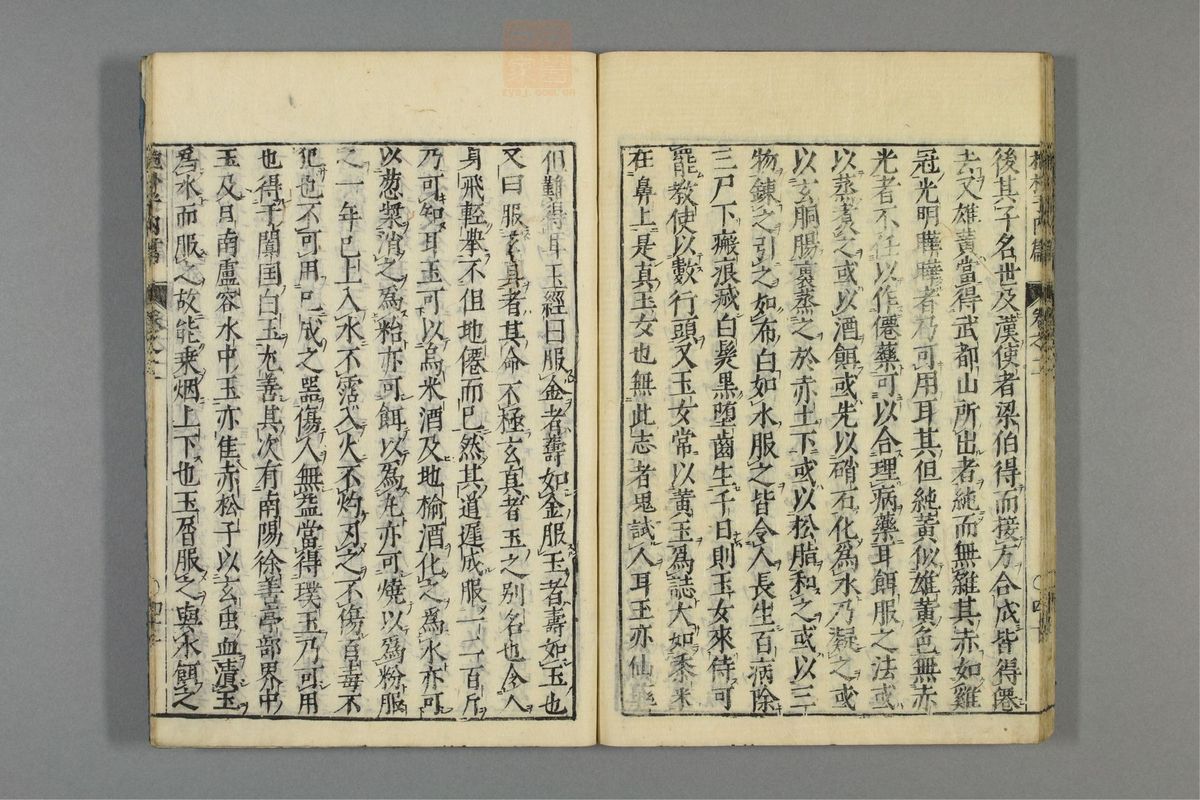 後其子名世及漢使者梁伯得而接方合成皆得僊
去又雄黃當得武都山所出者純而無雜其赤如雞
冠光明曄曄者乃可用耳其但純黃似雄黃色無赤
光者不任以作僊藥可以合理病藥耳餌服之法或
以蒸煮之或以酒餌或先以硝石化爲水乃凝之或
以玄胴腸裹蒸之於赤土下或以松脂和之或以三
物鍊之引之如布白如水服之皆令人長生百病除
三尸下瘢痕滅白髮黑墮齒生千日則玉女來侍可
罷教使以數行頭又玉女常以黃玉爲誌大如黍米
在鼻上是真玉女也無此志者鬼試人耳玉亦仙藥
但難得耳玉經曰服金者壽如金服玉者壽如玉也
又曰服玄真者其命不極玄真者玉之別名也令人
身飛輕舉不但地僊而已然其道遲成服一二百斤
乃可知耳玉可以烏米酒及地榆酒化之爲水亦可
以葱漿消之爲粭亦可餌以爲丸亦可燒以爲粉服
之一年已上入水不霑入火不灼刃之不傷百毒不
犯也不可用已成之器傷人無益當得璞玉乃可用
也得于闐国白玉尤善其次有南陽徐善亭部界中
玉及日南盧容水中玉亦佳赤松子以玄虫血漬玉
爲水而服之故能乗烟上下也玉屑服之與水餌之